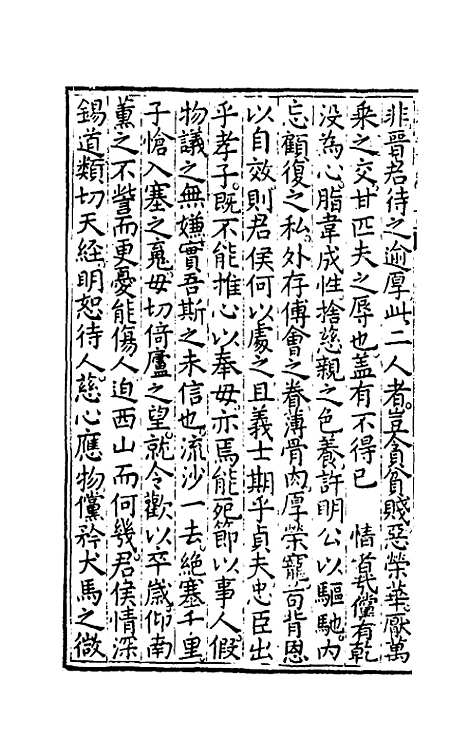 非晉君待之逾厚此二人者豈貪貧賤惡榮華厭萬
乘之交甘匹夫之辱也蓋有不得已 情者哉儻有乾
没為心脂韋成性捨慈親之色養許明公以驅馳内
忘顧復之私外存傅會之眷薄骨肉厚榮寵苟背恩
以自效則君侯何以處之且義士期乎貞夫忠臣出
乎孝子既不能推心以奉母亦焉能死節以事人假
物議之無嫌實吾斯之未信也流沙一去絕塞千里
子愴入塞之䰟母切倚廬之望就令歡以卒歲仰南
薰之不訾而更憂能傷人迫西山而何幾君侯情深
錫道類切天經明恕待人慈心應物儻矜犬馬之微